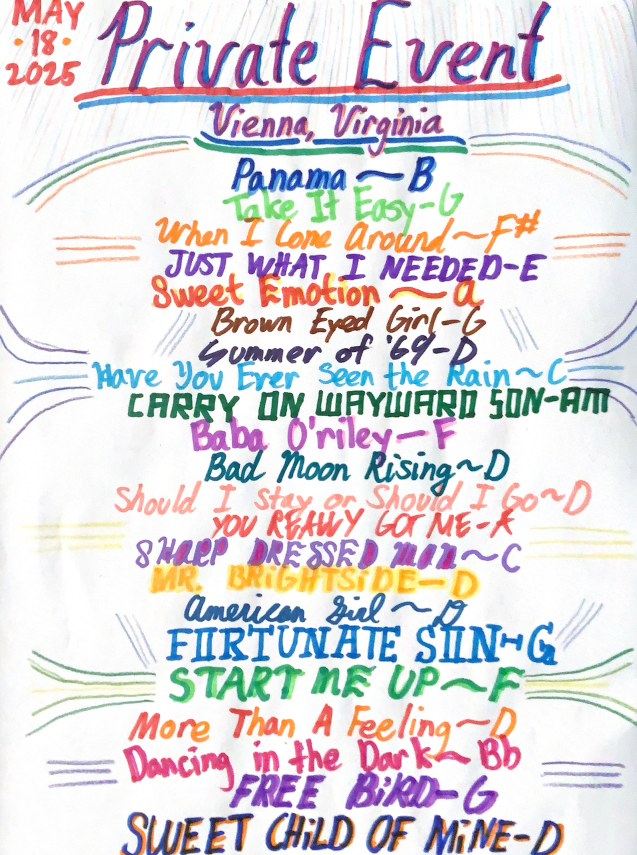 MAY
·18·
2025
Private Event
Vienna, Virginia
Panama ~ B
Take It Easy-G
When I Come Around ~ F#
JUST WHAT I NEEDED-E
Sweet Emotion ~ a
Brown Eyed Girl-G
Summer of '69-D
Have You Ever Seen the Rain ~ C
CARRY ON WAYWARD SON-AM
Baba O'riley - F
Bad Moon Rising ~ D
Should I Stay or Should I Go ~ D
YOU REALLY GOT ME-A
SHARP DRESSED MAN ~ C
MR. BRiGHTSiDE - D
American Girl ~ D
FORTUNATE SON-G
START ME UP ~ F
More Than A Feeling ~ D
Dancing in the Dark ~ Bb
FREE BiRD-G
SWEET CHiLD OF MiNE-D